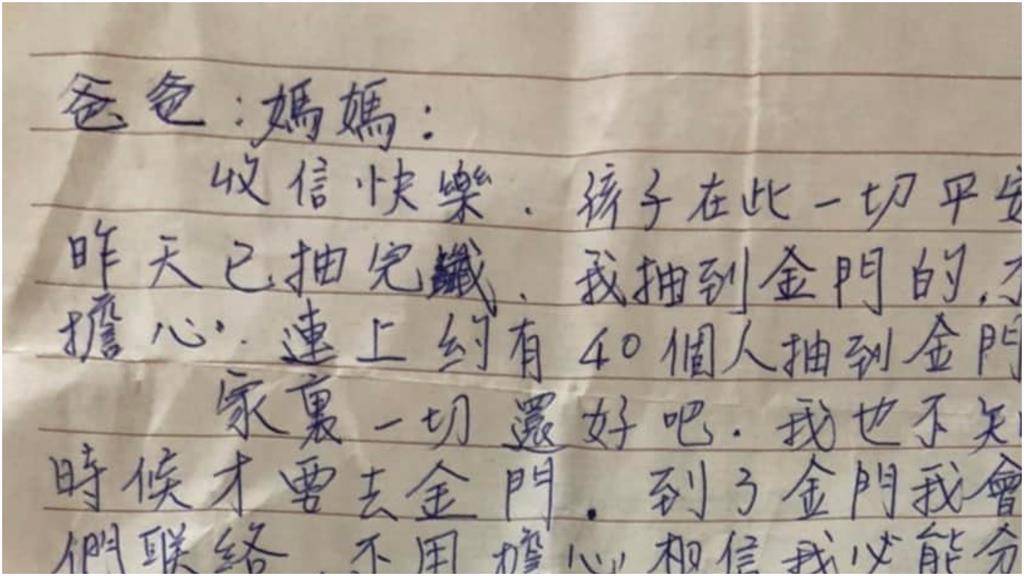 爸爸:媽媽:
收信快樂.孩子在此一切平安
昨天已抽完籤.我抽到金門的.不
擔心.連上約有40個人抽到金門
家裏一切還好吧.我也不知
時候才要去金門.到了金門我會
們联絡 不用擔心相信我必能